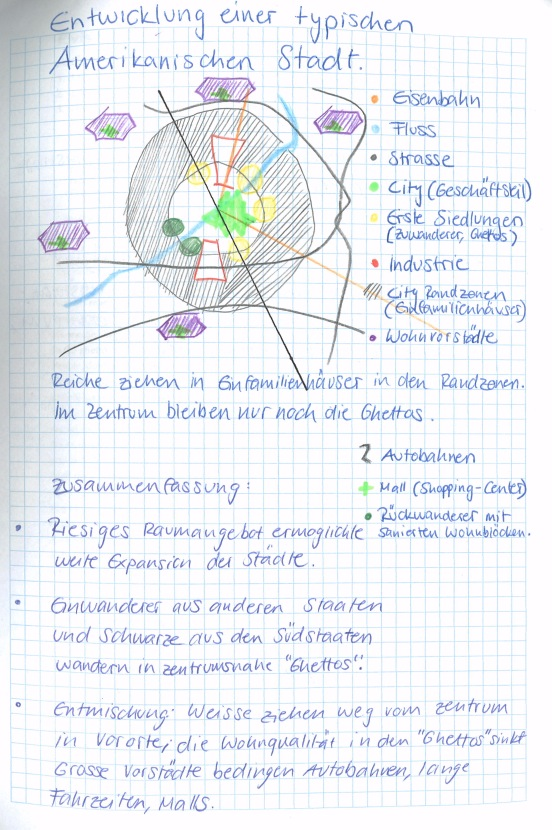 Entwicklung einer typischen
Amerikanischen Stadt.
Eisenbahn
Fluss
Strasse
City (Geschäftsteil)
Erste Siedlungen
(Zuwanderer, Ghettos)
Industrie
City Randzonen
(Einfamilienhäuser)
Wohnvorstädte
Reiche ziehen in Einfamilienhäuser in den Randzonen.
Im Zentrum bleiben nur noch die Ghettos.
Autobahnen
Mall (Shopping-Center)
Rückwanderer mit
sanierten Wohnblöcken.
Zusammenfassung:
• Riesiges Raumangebot ermöglichte
weite Expansion der Städte.
• Einwanderer aus anderen Staaten
und Schwarze aus den Südstaaten
wandern in zentrumsnahe "Ghettos".
• Entmischung: Weisse ziehen weg vom Zentrum
in Vororte, die Wohnqualität in den "Ghettos" sinkt
Grosse Vorstädte bedingen Autobahnen, lange
Fahrzeiten, Malls.